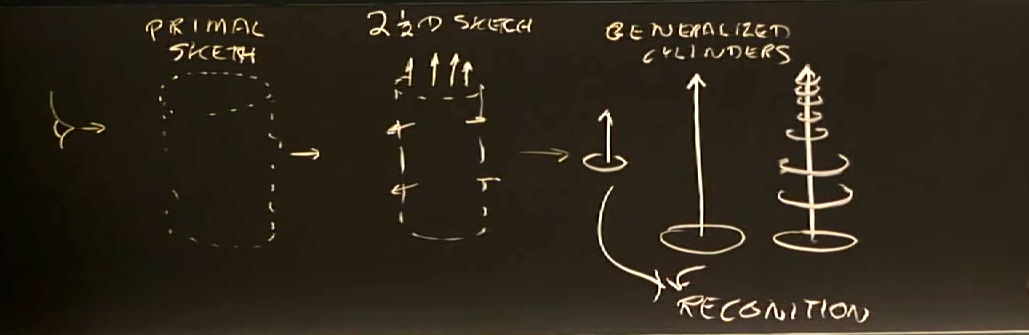 PRIMAL
SKETH
2 1/2 D SKETCH
GENERALIZED
CYLINDERS
RECONITION